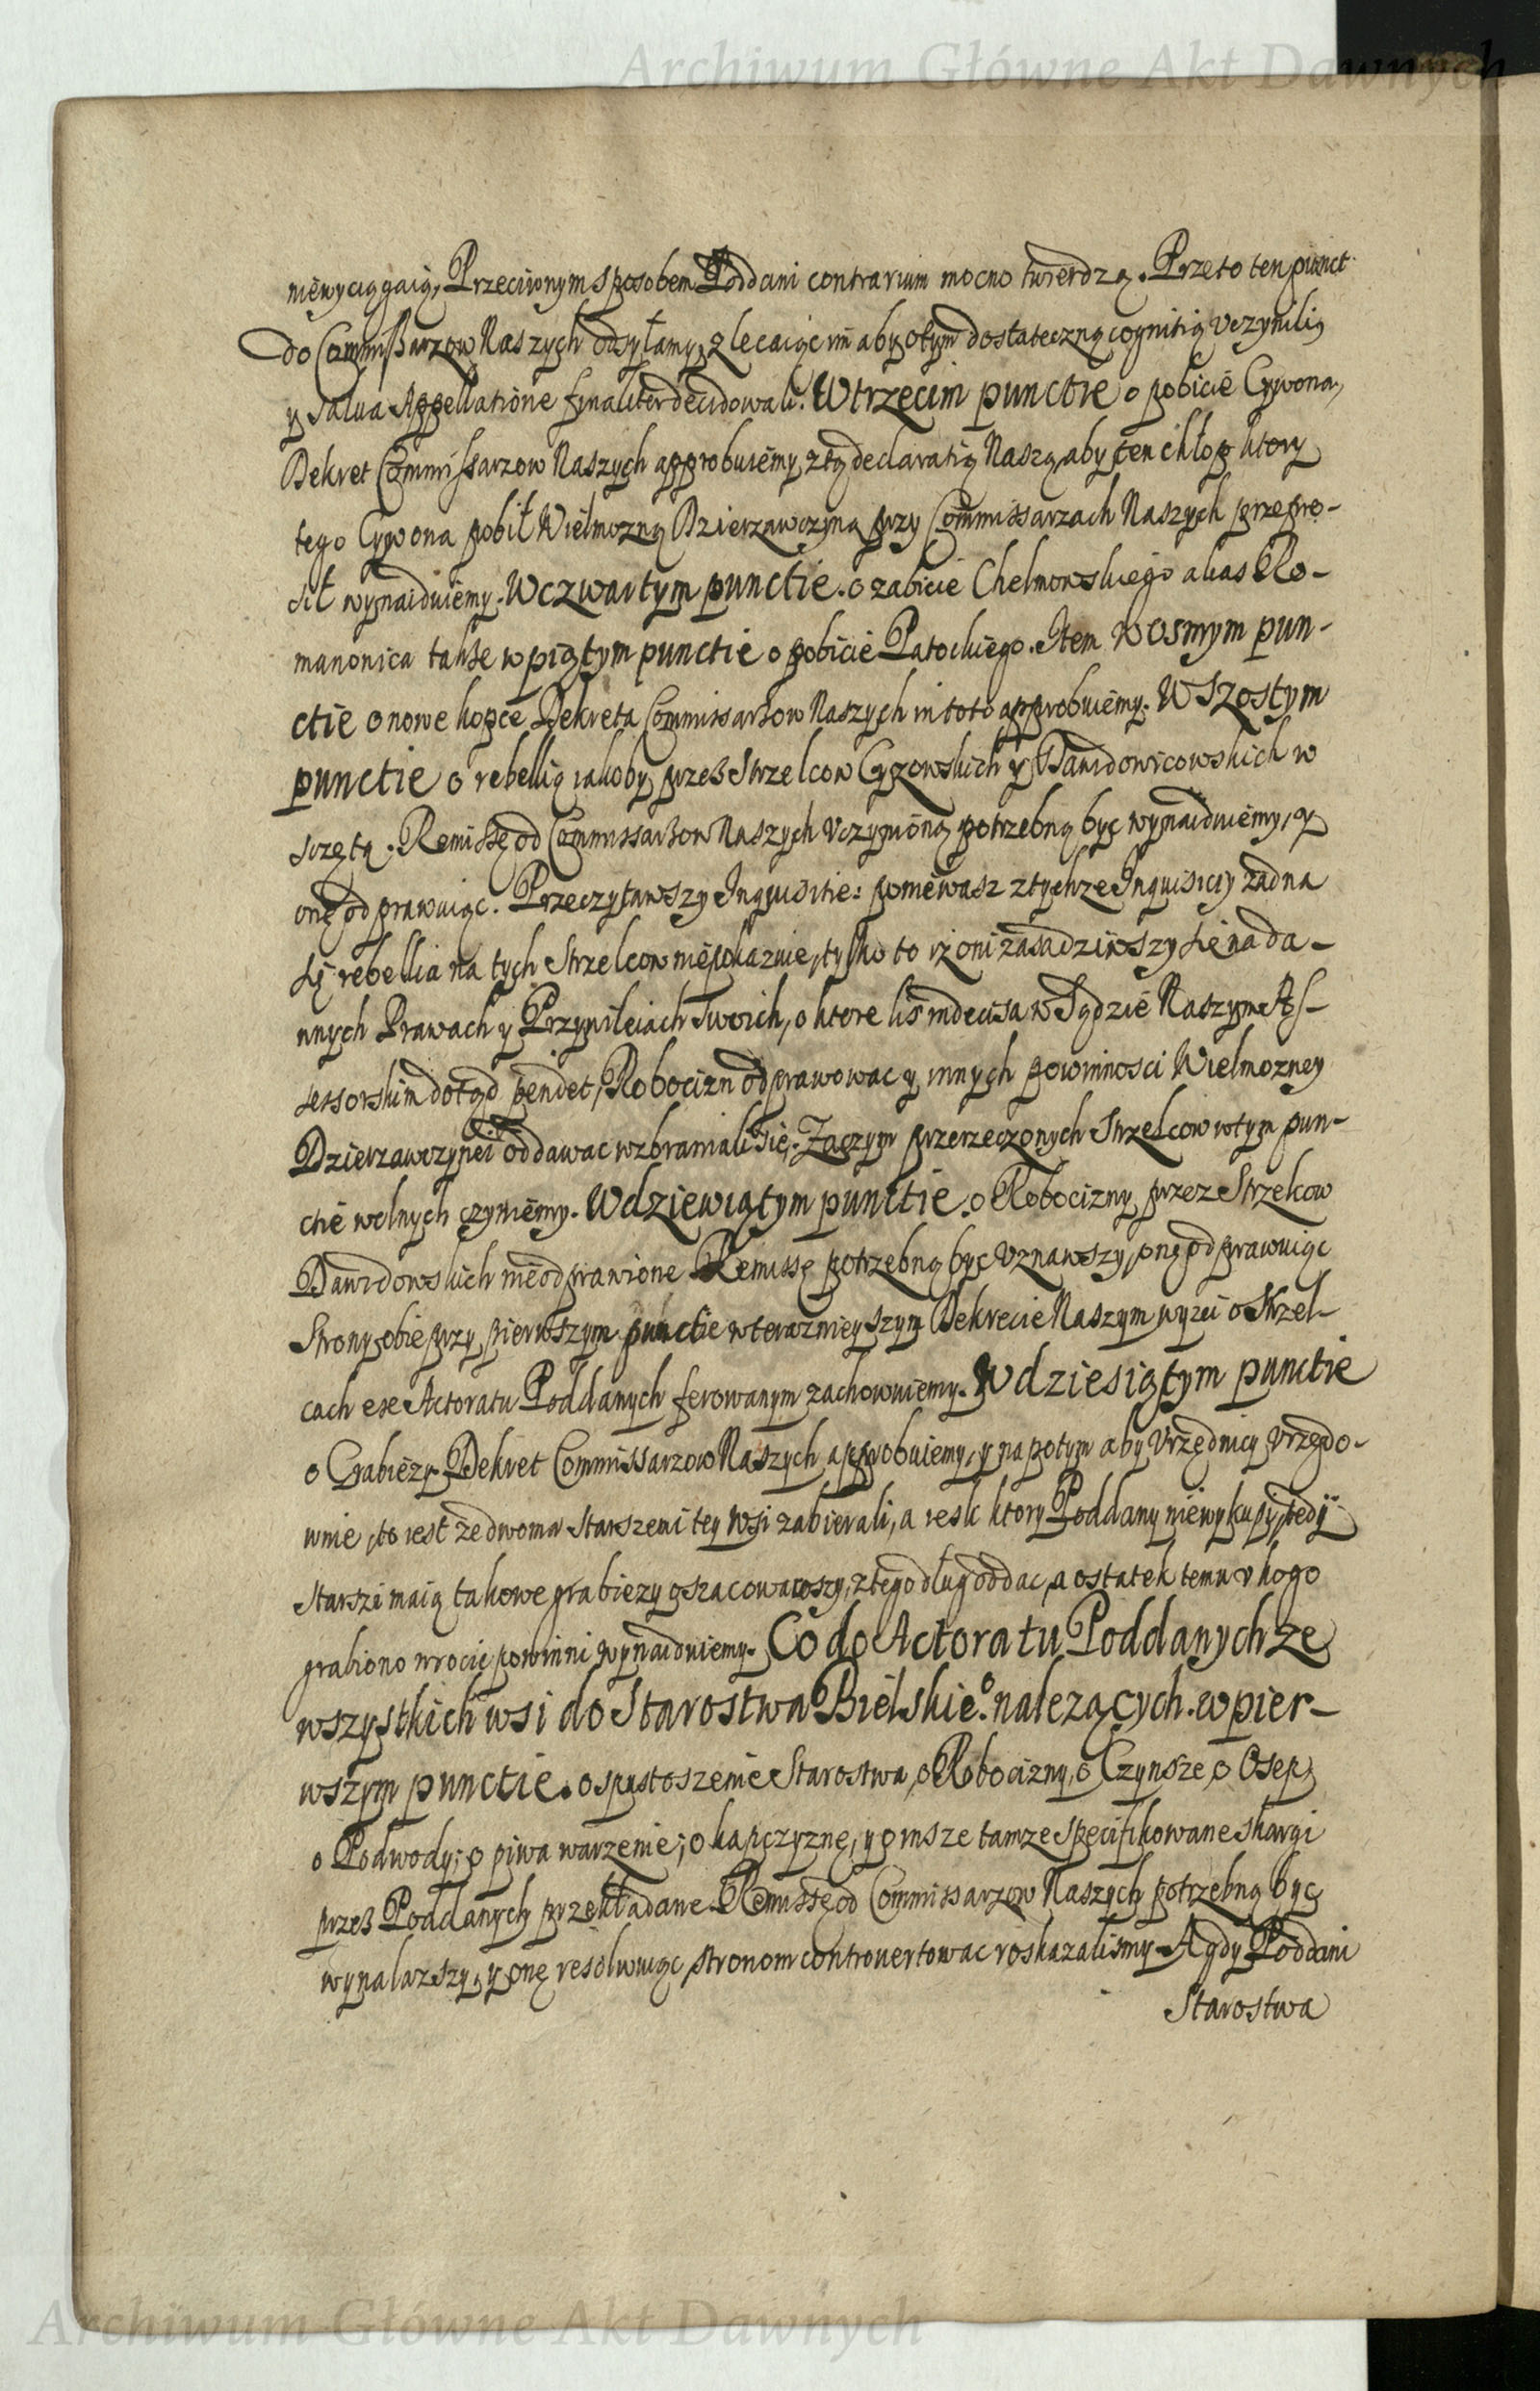 Archiwum Główne Akt Dawnych
niewyciągaią, Przeciwnym sposobem Poddani contrarium mocno twierdzą. Przeto ten punct
do Commissarzow Naszych odsyłamy, zlecaiąc im aby otym dostateczną cognitią vczynili,
y salva Appellatione finaliter decidowali. W trzecim punctie o pobicie Cywona,
Dekret Commissarzow Naszych approbuiemy, z tą declaratią Naszą, aby ten chłop ktory
tego Cywona pobił Wielmozną Dzierzawczyną przy Commissarzach Naszych przepro-
sił wynaiduiemy. W czwartym punctie. o zabicie Chelmowskiego alias Ro-
manonica takze w piątym punctie o pobicie Patockiego. Item w osmym pun-
ctie o nowe kopce Dekreta Commissarzow Naszych in toto approbuiemy. W szostym
punctie o rebellią iakoby przez Strzelcow Cyzowskich y Dawidowicowskich w
sczętą. Remissę od Commissarzow Naszych vczynioną potrzebną być wynaiduiemy, y
onę odprawuiąc. Przeczytawszy Inquisitie: poniewasz z tychze Inquisiciy zadna
się rebellia na tych Strzelcow niepokazuie, tylko to iz oni zasadziwszy się na da-
wnych Prawach y Przywileiach swoich, o ktore lis indecisa w Sądzie Naszym As-
sessorskim dotąd pendet, Robocizn odprawowac y innych powinnosci Wielmozney
Dzierzawczynei oddawac wzbraniali się. Zaczym przerzeczonych Strzelcow w tym pun-
ctie wolnych czyniemy. W dziewiątym punctie. o Robocizny przez Strzelcow
Dawidowskich nieodprawione Remissę potrzebną być vznawszy, onę odprawuiąc
Strony obie przy pierwszym punctie w teraznieyszym Dekrecie Naszym wyzei o Strzel-
cach ex Actoratu Poddanych ferowanym zachowuiemy. W dziesiątym punctie
o Grabiezy Dekret Commissarzow Naszych approbuiemy, y napotym aby Vrzędnicy vrzędo-
wnie, to iest ze dwoma Starszemi tey wsi zabierali, a iesli ktory Poddany niewykupi, tedy
Starsi maią takowe grabiezy oszacowawszy, z tego dług oddac, a ostatek temu v kogo
grabiono wrocic powinni wynaiduiemy. Co do Actoratu Poddanych ze
wszystkich wsi do Starostwa Bielskie.º nalezących. w pier-
wszym punctie. o spustoszenie Starostwa, o Robocizny, o Czynsze, o Osep,
o Podwody; o piwa warzenie; o kapczyznę, y o insze tamze specifikowane skargi
przez Poddanych przekładane Remissę od Commissarzow Naszych potrzebną być
wynalazszy, y onę resolwuiąc stronom controvertowac roskazalismy. A gdy Poddani
Starostwa
Archiwum Główne Akt Dawnych